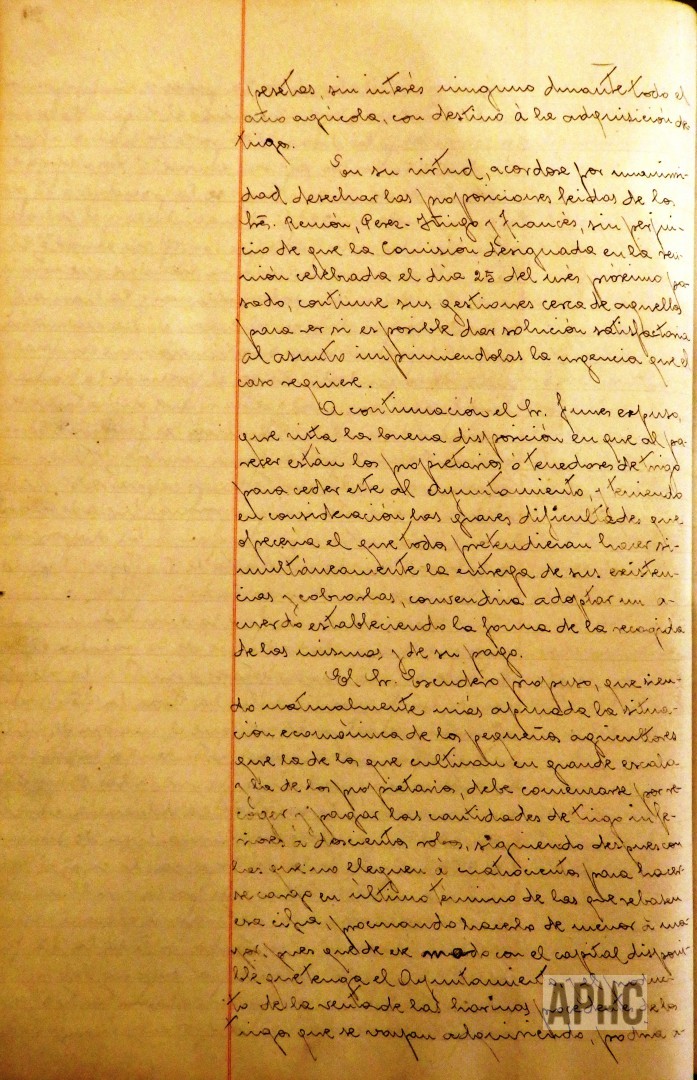 pesetas, sin interés ninguno durante todo el
año agrícola, con destino á la adquisición de
trigo.
En su virtud, acordose por unanimi-
dad desechar las proposiciones leidas de los
Sres. Remón, Perez-Iñigo y Francés, sin perjui-
cio de que la Comisión designada en la reu-
nión celebrada el dia 25 del mes proximo pa-
sado, continue sus gestiones cerca de aquellos
para ver si es posible dar solución satisfactoria
al asunto imprimiendolas la urgencia que el
caso requiere.
A continuación el Sr. Funes expuso,
que vista la buena disposición en que al pa-
recer están los propietarios ó tenedores de trigo
para ceder este al Ayuntamiento, y teniendo
en consideración las graves dificultades que
ofreceria el que todos pretendieran hacer si-
multáneamente la entrega de sus existen-
cias y cobrarlas, convendria adoptar un a-
cuerdo estableciendo la forma de la recogida
de las mismas y de su pago.
El Sr. Escudero propuso, que sien-
do naturalmente más apurada la situa-
ción económica de los pequeños agricultores
que la de los que cultivan en grande escala
y la de los propietarios, debe comenzarse por re-
coger y pagar las cantidades de trigo infe-
riores á doscientos robos, siguiendo despues con
las que no lleguen á cuatrocientos para hacer-
se cargo en último termino de las que rebasen
esa cifra, procurando hacerlo de menor á ma-
yor, pues que de ese modo con el capital disponi-
ble que tenga el Ayuntamiento y el produc-
to de la venta de las harinas procedentes de los
trigos que se vayan adquiriendo, podria
APHC